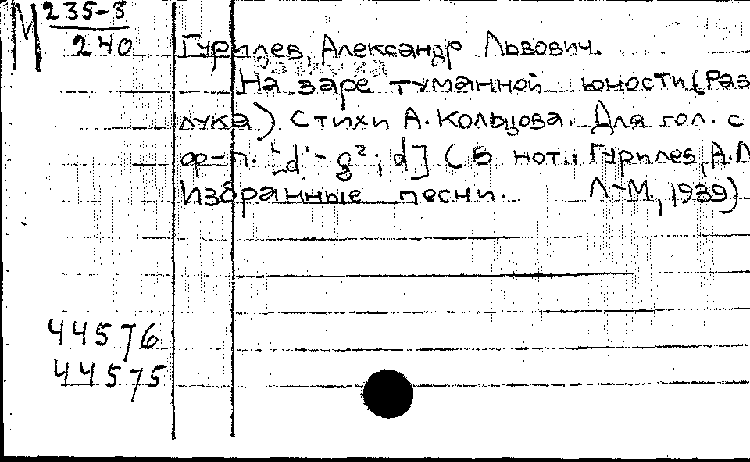 М 235-8
240
Гурилев, Александр Львович.
На заре туманной юности (Раз
лука). Стихи А. Кольцова. Для гол. с
ф-п. [d' - g²; d] (В нот.: Гурилев, А.Л
Избранные песни. Л-М, 1939)
44576
44575